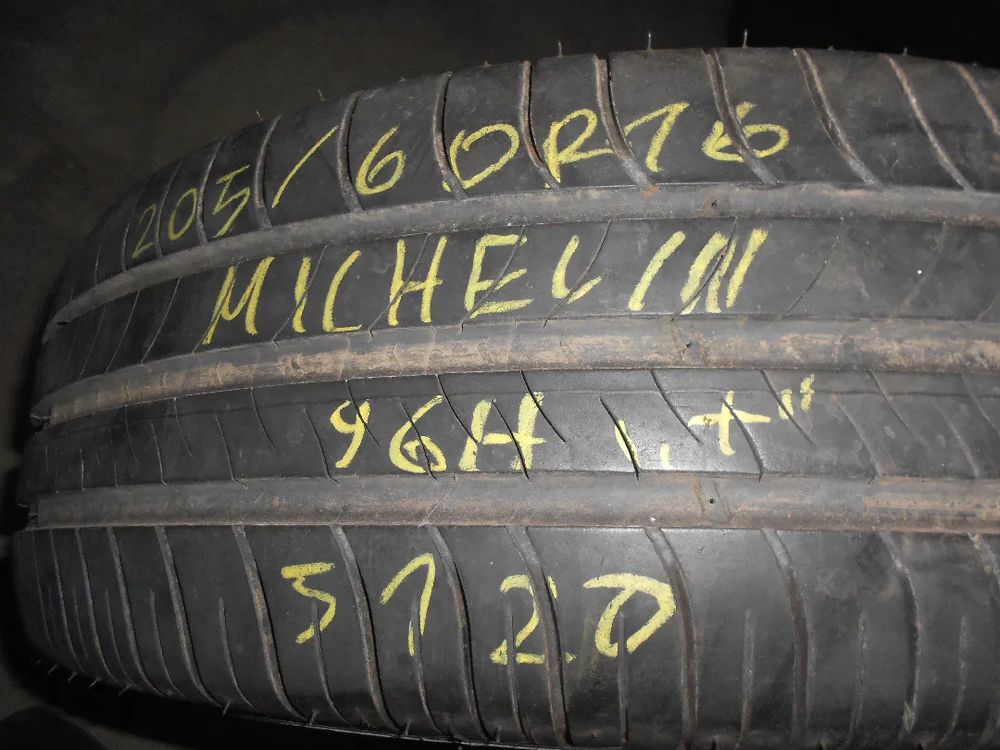 205/60R16
MICHELIN
96H 1.+"
5120